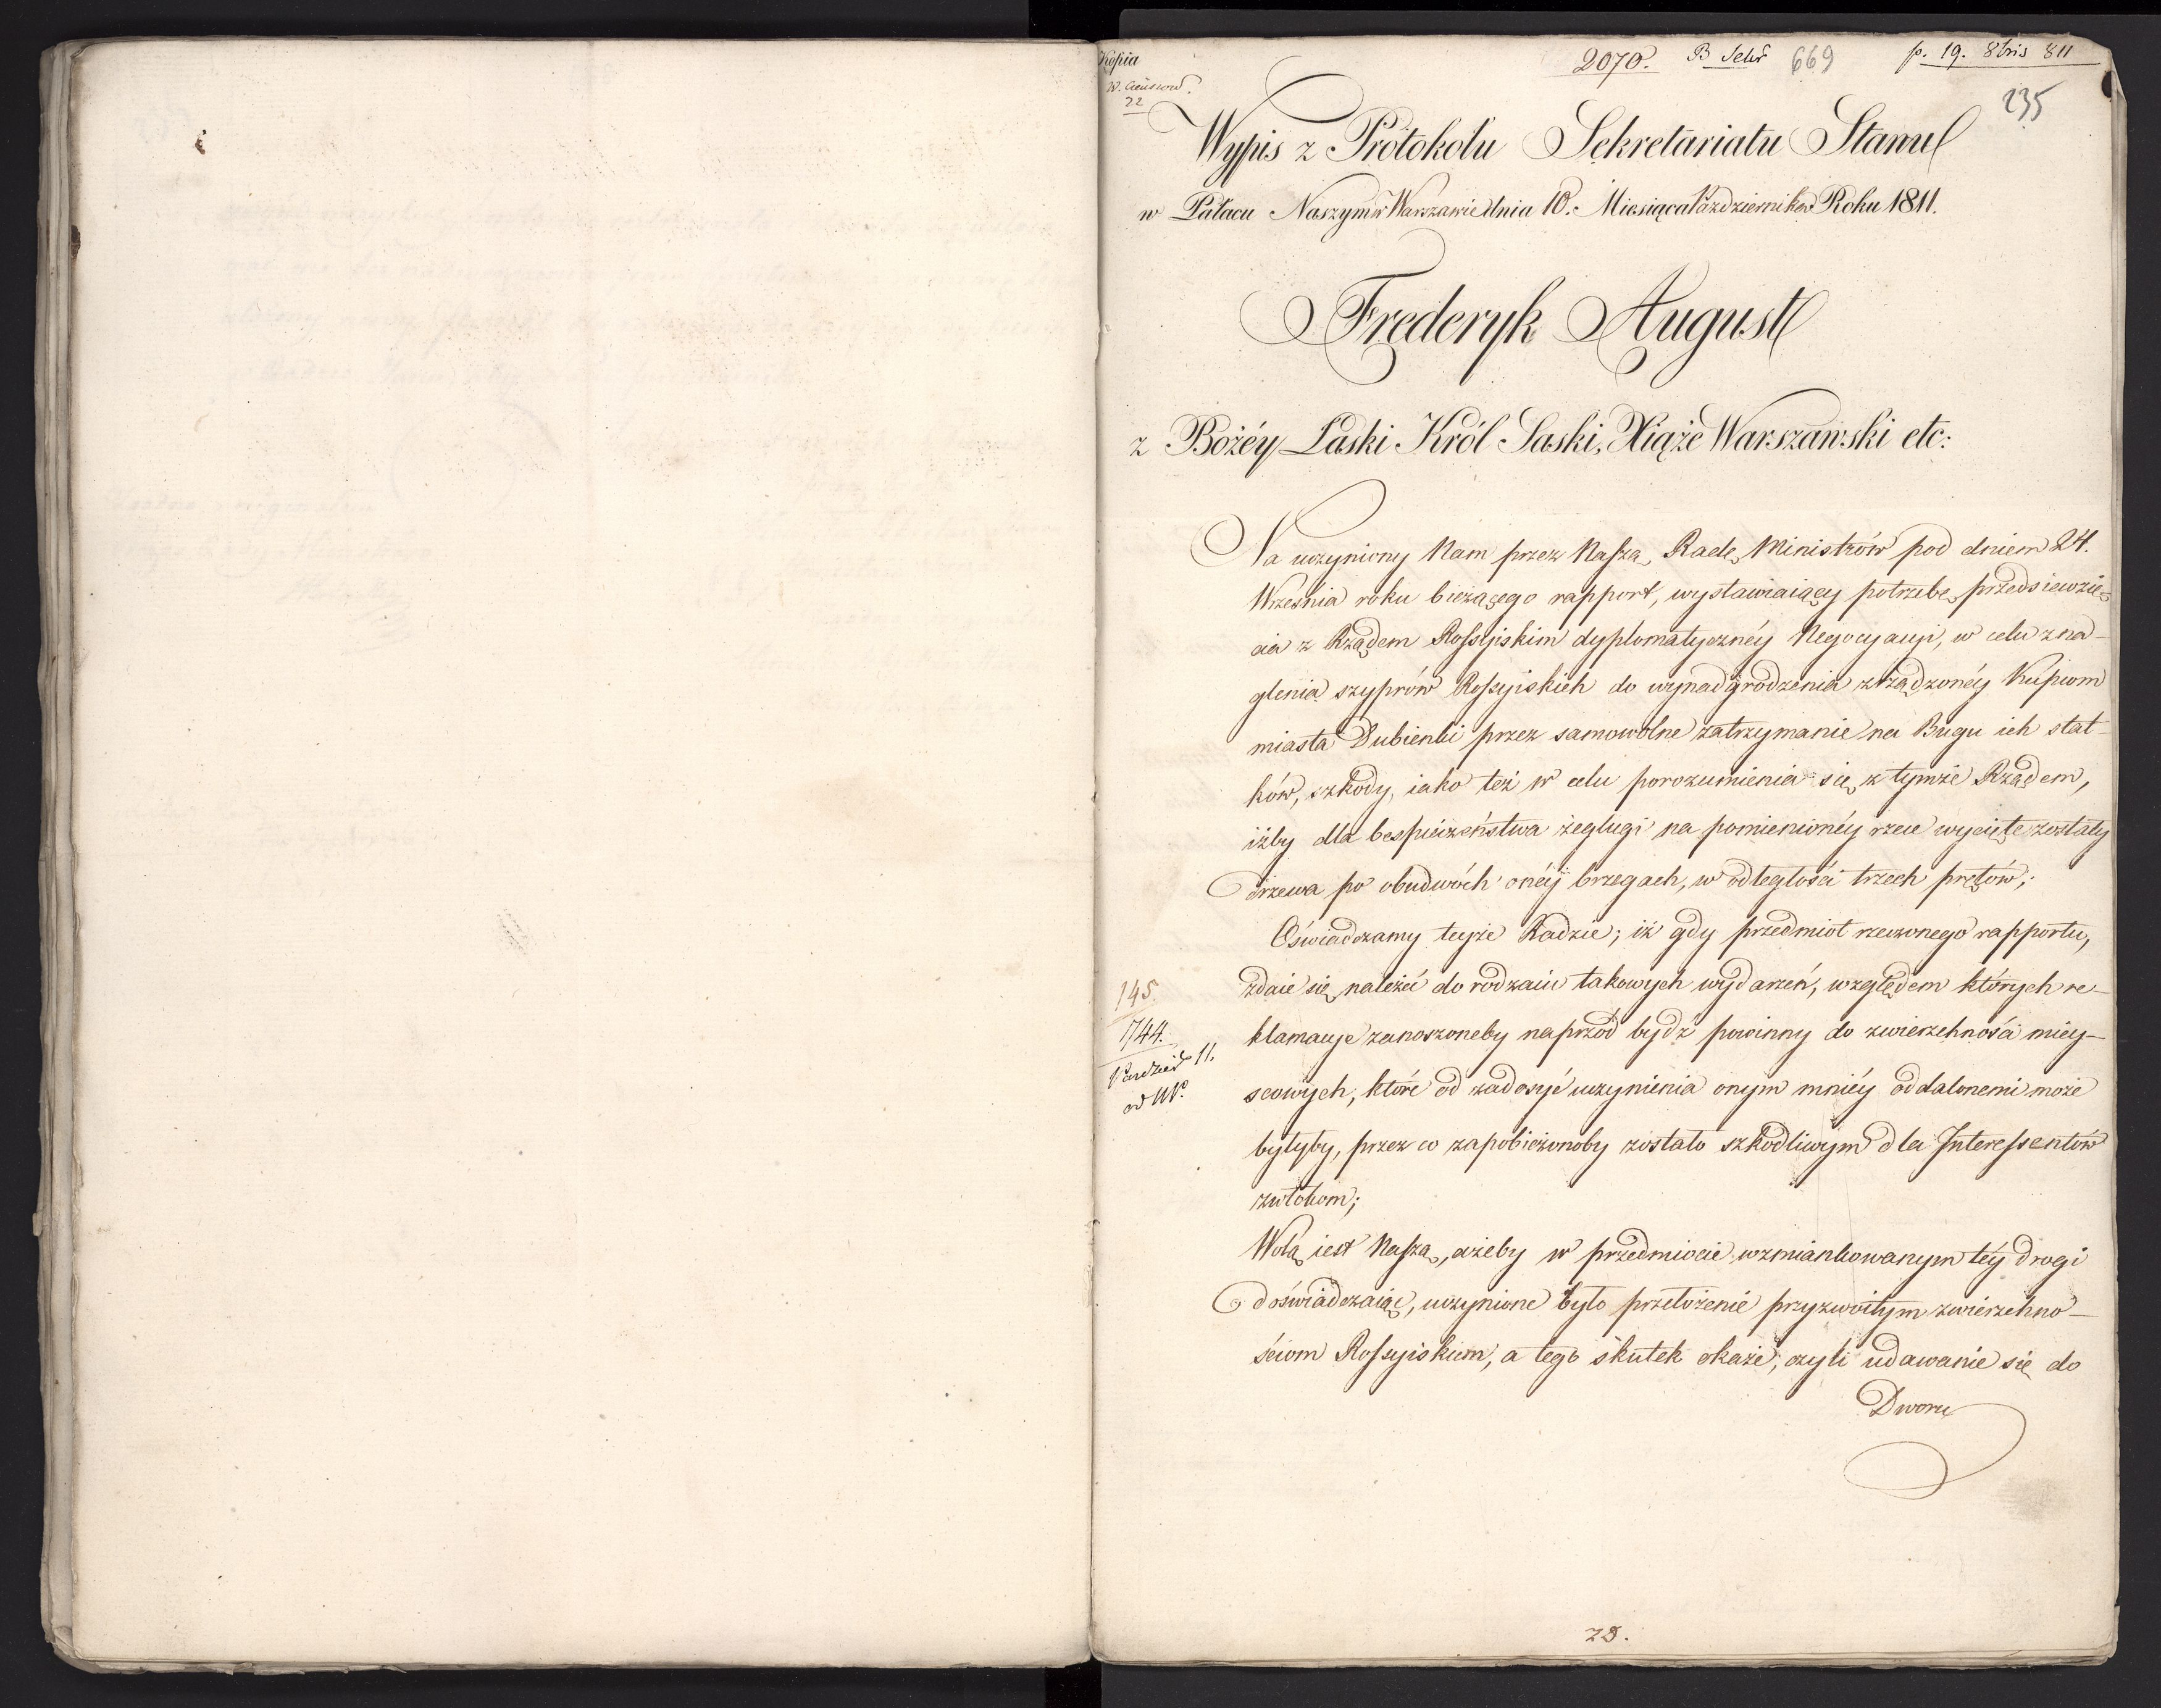 Kopia
22
2070. B Sekr 669 p. 19. 8bris 811
235
Wypis z Protokołu Sekretariatu Stanu
w Pałacu Naszym w Warszawie dnia 10. Miesiąca Października Roku 1811.
Frederyk August
z Bożéy Łaski Król Saski, Xiąże Warszawski etc:
Na uczyniony Nam przez Naszą Radę Ministrów pod dniem 24.
Września roku bieżącego rapport, wystawiaiący potrzebę przedsiewzię-
cia z Rządem Rossyiskim dyplomatycznéy Negocyacyi, w celu zna-
glenia szyprów Rossyiskich do wynadgrodzenia zrządzonéy Kupcom
miasta Dubienki przez samowolne zatrzymanie na Bugu ich stat-
ków, szkody, iako też w celu porozumienia się z tymże Rządem,
iżby dla bespieczeństwa żeglugi na pomienionéy rzece wycięte zostały
drzewa po obudwóch onéy brzegach, w odległości trzech prętów;
Oświadczamy teyże Radzie; iż gdy przedmiot rzeczonego rapportu,
zdaie się należeć do rodzaiu takowych wydarzeń, względem których re-
klamacye zanoszoneby naprzód bydź powinny do zwierzchności miey-
scowych, które od zadosyć uczynienia onym mniéy oddalonemi może
byłyby, przez co zapobieżonoby zostało szkodliwym dla Interessentów
zwłokom;
Wolą iest Naszą, ażeby w przedmiocie wzmiankowanym téy drogi
doświadczaiąc, uczynione było przełożenie przyzwoitym zwierzchno-
ściom Rossyiskiem, a tego skutek okaże, czyli udawanie się do
Dworu
145.
744.
Paździer 11.
28.